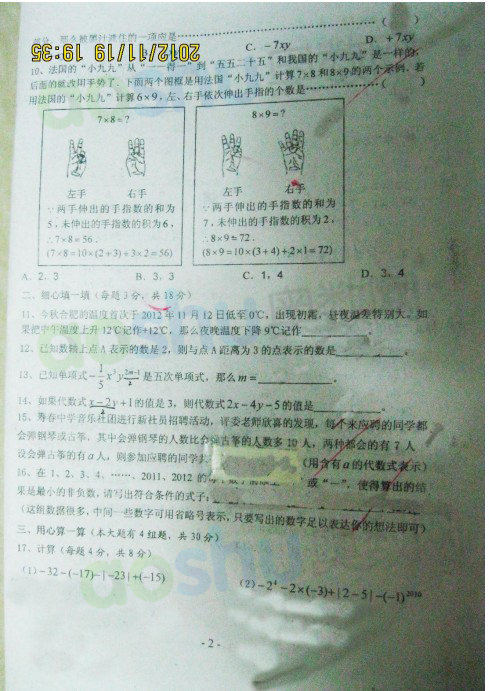 2012/11/19 19:35
C. －7xy
D. ＋7xy
10、法国的“小九九”从“一一得一”到“五五二十五”和我国的“小九九”是一样的,
后面的就改用手势了. 下面两个图框是用法国“小九九”计算7×8和8×9的两个示例. 若
用法国的“小九九”计算6×9, 左、右手依次伸出手指的个数是………………( )
7×8=?
8×9=?
左手 右手
左手 右手
∵两手伸出的手指数的和为
5, 未伸出的手指数的积为6,
∴7×8=56.
(7×8=10×(2+3)+3×2=56)
∵两手伸出的手指数的和为
7, 未伸出的手指数的积为2,
∴8×9=72.
(8×9=10×(3+4)+2×1=72)
A. 2, 3 B. 3, 3 C. 1, 4 D. 3, 4
二、细心填一填（每题3分, 共18分）
11、今秋合肥的温度首次于2012年11月12日低至0℃, 出现初霜, 昼夜温差特别大。如
果把中午温度上升12℃记作+12℃, 那么夜晚温度下降9℃记作
12、已知数轴上点A表示的数是2, 则与点A距离为3的点表示的数是
13、已知单项式 -1/5 x³y^(2m-1)/2 是五次单项式, 那么m =
14、如果代数式x－2y＋1的值是3, 则代数式2x－4y－5的值是
15、寿春中学音乐社团进行新社员招聘活动, 评委老师欣喜的发现, 每个来应聘的同学都
会弹钢琴或古筝, 其中会弹钢琴的人数比会弹古筝的人数多10人, 两种都会的有7人
设会弹古筝的有a人, 则参加应聘的同学共 (用含有a的代数式表示)
16、在1、2、3、4、……、2011、2012的每个数字前添上 或“－”, 使得算出的结
果是最小的非负数, 请写出符合条件的式子:
(这组数据很多, 中间一些数字可用省略号表示, 只要写出的数字足以表达你的想法即可)
三、用心算一算（本大题有4组题, 共30分）
17、计算（每题4分, 共8分）
(1) －32－(－17)－|－23|＋(－15)
(2) －2⁴－2×(－3)＋|2－5|－(－1)²⁰¹⁰
- 2 -